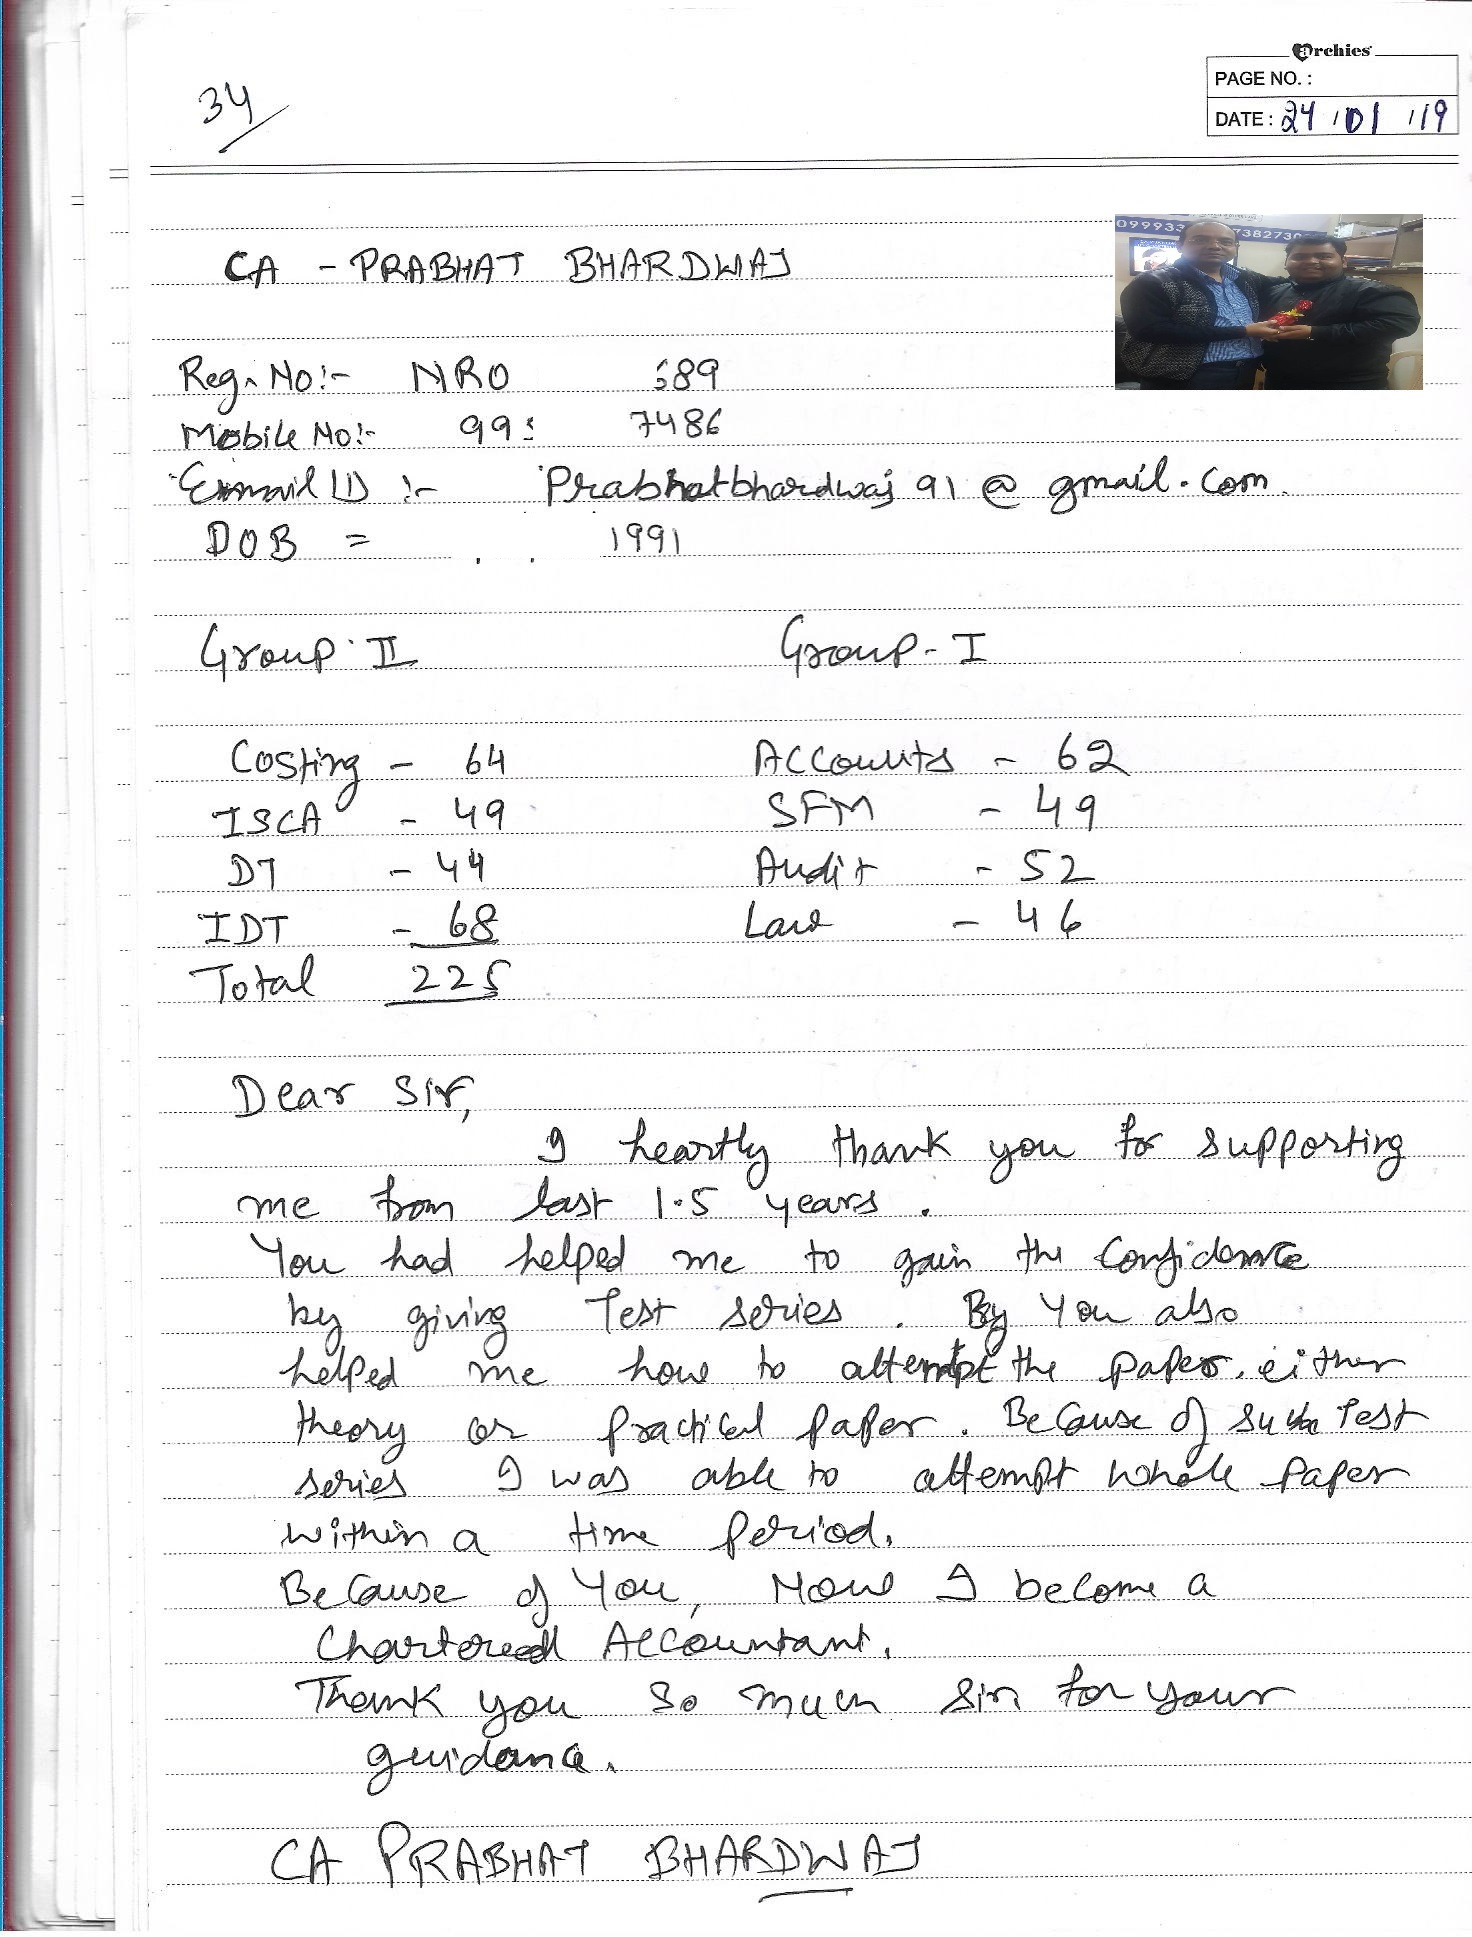 archies
PAGE NO. :
DATE : 24 / 01 / 19
34
09993 7382730
CA - PRABHAT BHARDWAJ
Reg. No:- NRO 589
Mobile No:- 99 7486
Email ID :- Prabhatbhardwaj91@gmail.com
DOB = . . 1991
Group II Group-I
Costing - 64 Accounts - 62
ISCA - 49 SFM - 49
DT - 44 Audit - 52
IDT - 68 Law - 46
Total 225
Dear Sir,
I heartly thank you for supporting
me from last 1.5 years .
You had helped me to gain the Confidence
by giving Test series . By You also
helped me how to attempt the paper. either
theory or practical paper . Because of such Test
series I was able to attempt whole Paper
within a time period.
Because of You, Now I become a
Chartered Accountant.
Thank you so much sir for your
guidance.
CA PRABHAT BHARDWAJ